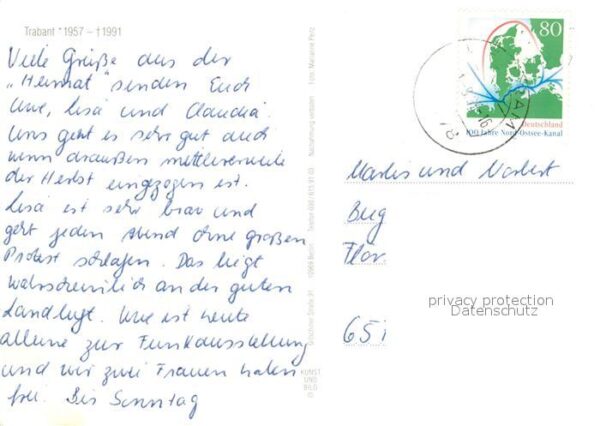 Trabant *1957 – †1991
Viele Grüße aus der
„Heimat" senden Euch
Uwe, Lisa und Claudia.
Uns geht es sehr gut auch
wenn draußen mittlerweile
der Herbst eingezogen ist.
Lisa ist sehr brav und
geht jeden Abend ohne großen
Protest schlafen. Das liegt
wahrscheinlich an der guten
Landluft. Uwe ist heute
alleine zur Funkausstellung
und wir zwei Frauen haben
frei. Bis Sonntag
Foto: Marianne Pletz
Nachahmung verboten
10969 Berlin
KUNST
UND
BILD
©
80
Deutschland
100 Jahre Nord-Ostsee-Kanal
Marlis und Norbert
Bug
Flor
651
privacy protection
Datenschutz